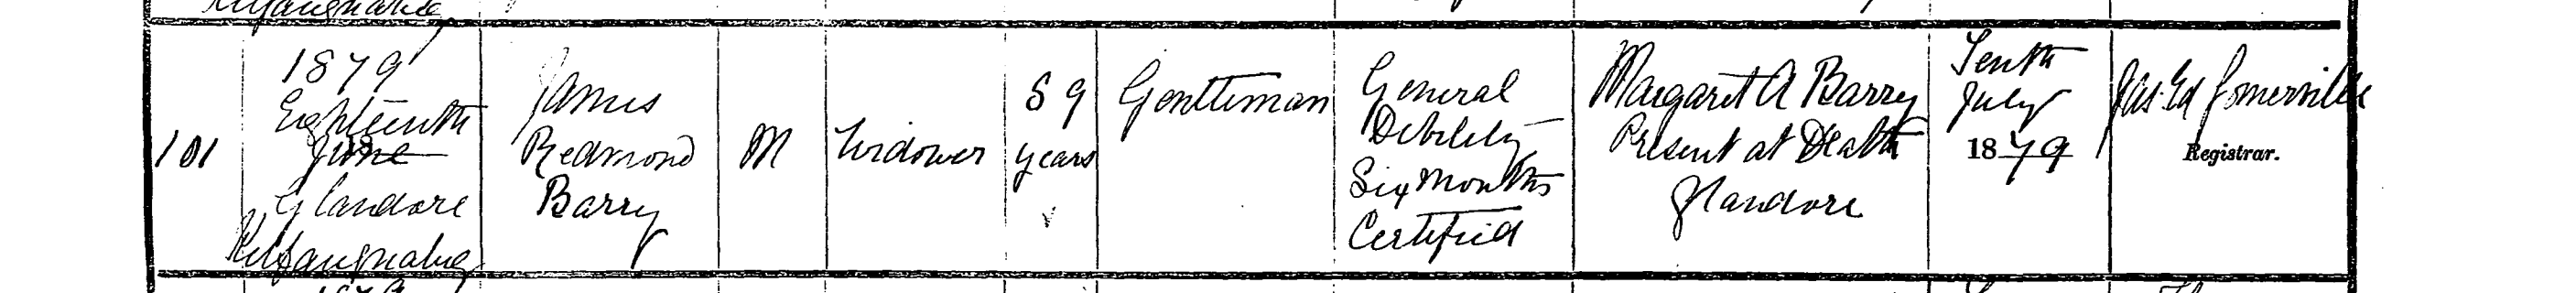 101
1879
Eighteenth
June
Glandore
Kilfaughnabeg
James
Redmond
Barry
M
Widower
89
years
Gentleman
General
Debility
Six Months
Certified
Margaret A Barry
Present at Death
Glandore
Tenth
July
1879
Jas. Ed Somerville
Registrar.